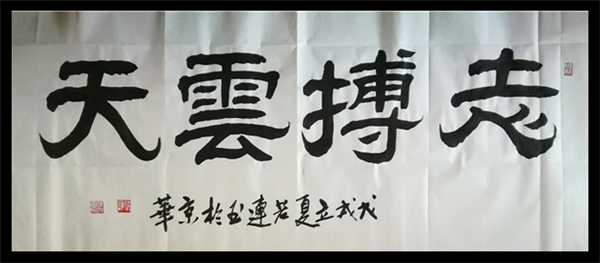 志搏雲天
戊戌立夏若連玉於京華